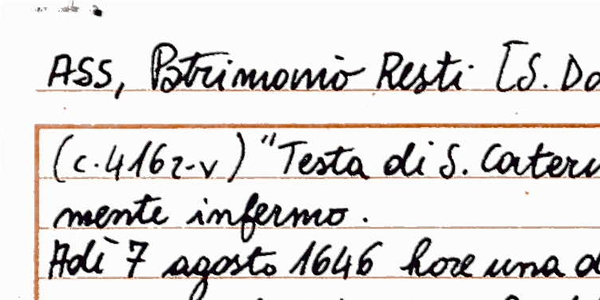 ASS, Patrimonio Resti [S. Do
(c.416r-v) "Testa di S. Cater
mente infermo.
Adì 7 agosto 1646 hore una d